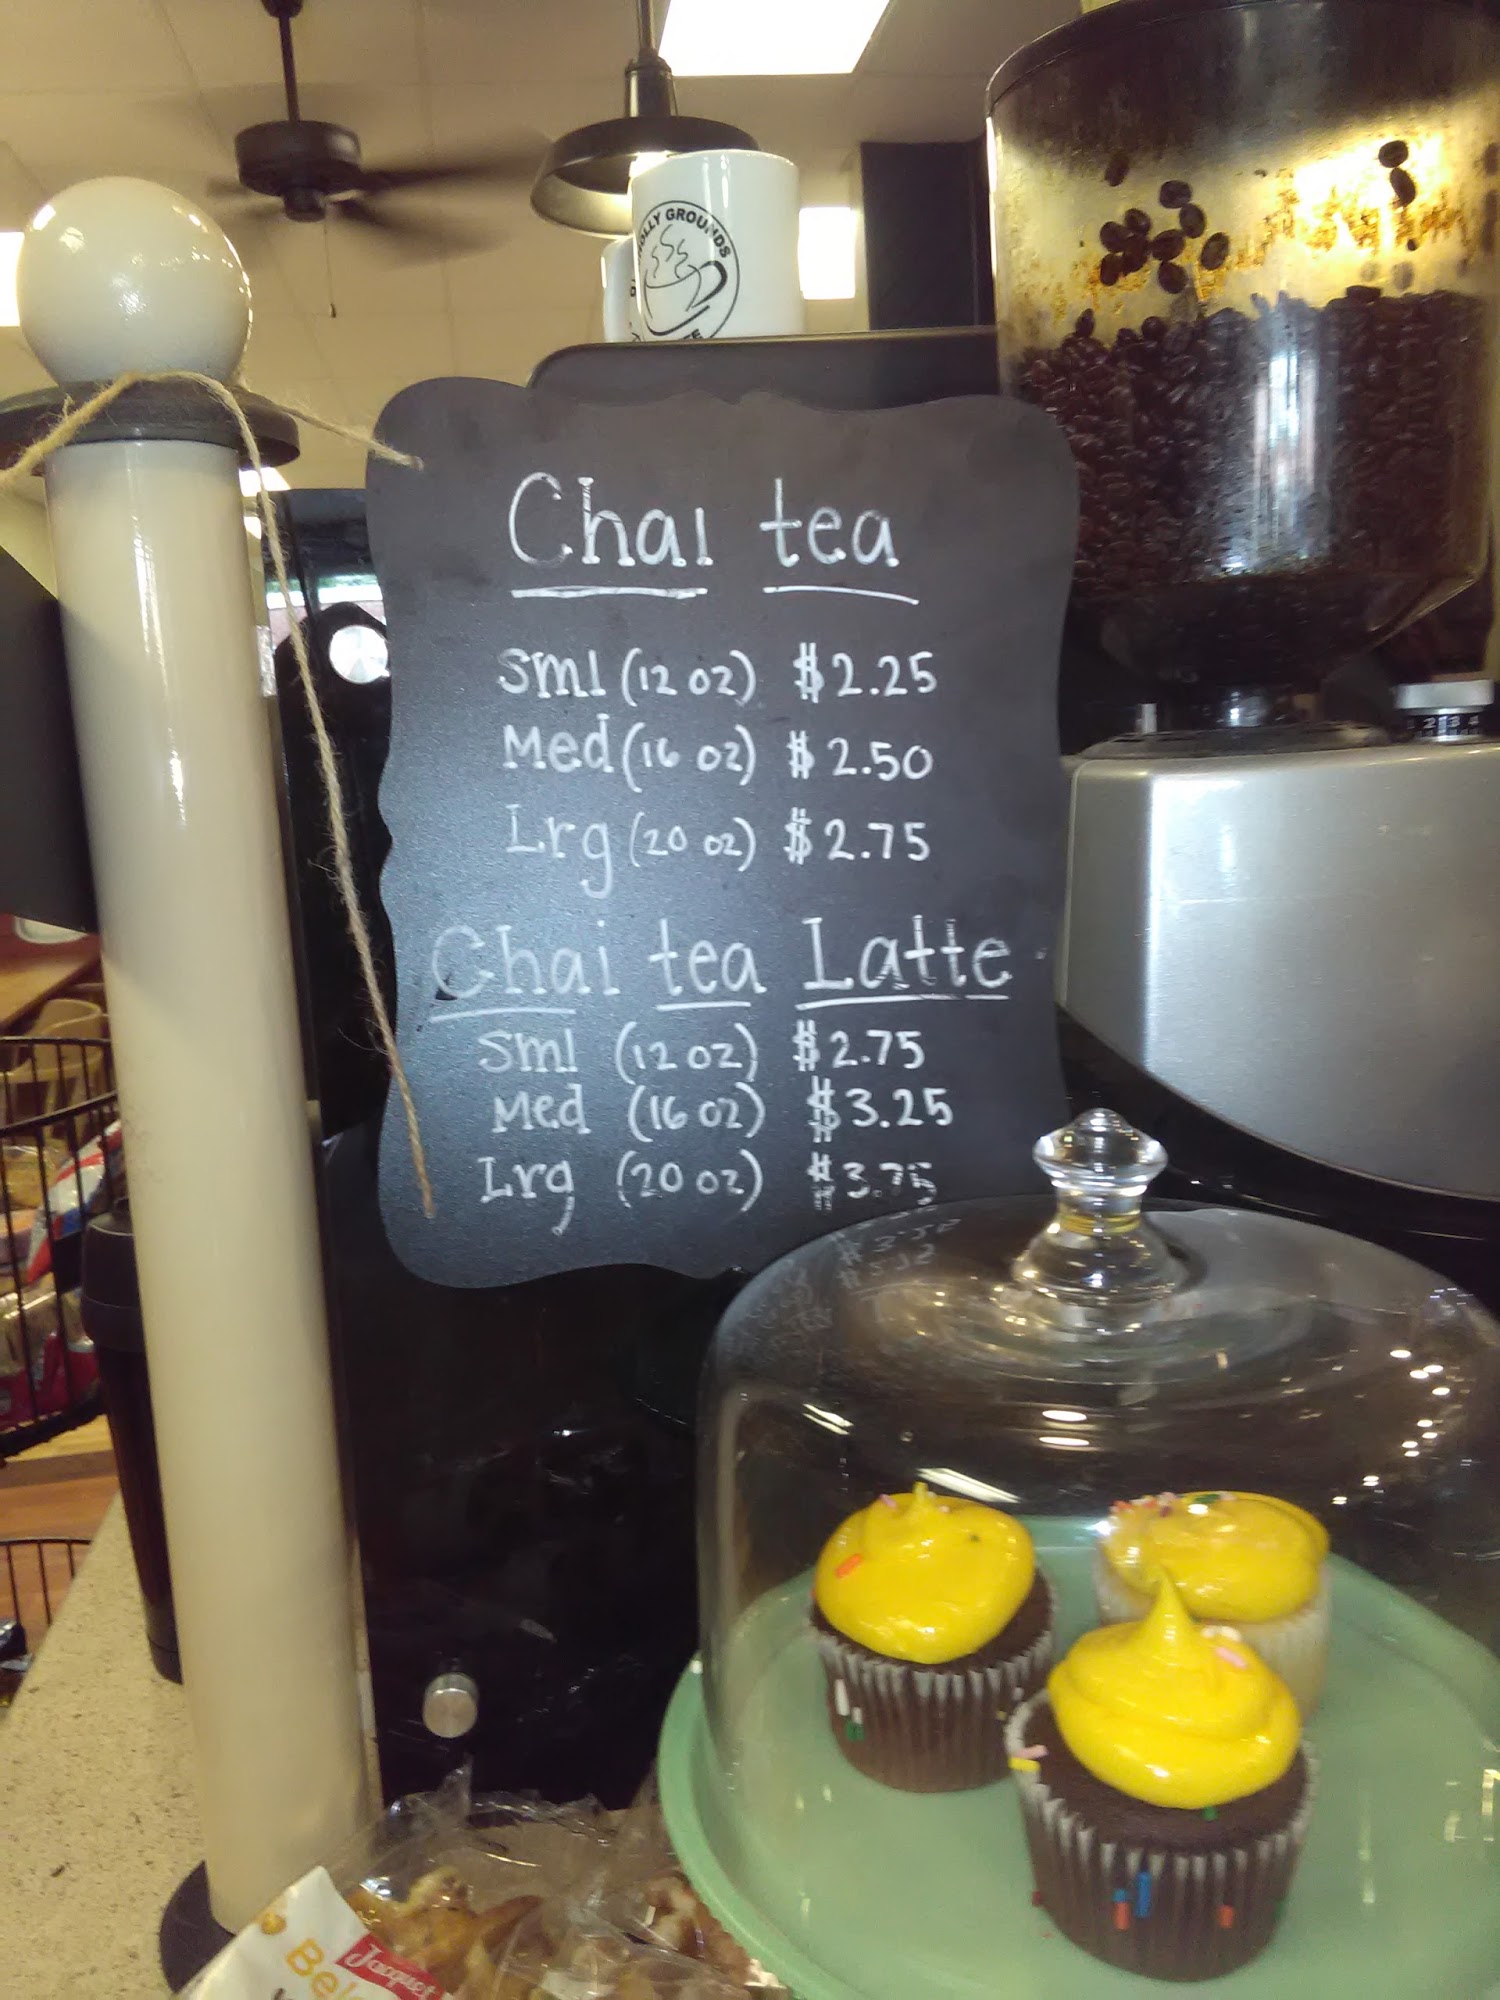 OLLY GROUNDS
Chai tea
Sml (12 oz) $2.25
Med (16 oz) $2.50
Lrg (20 oz) $2.75
Chai tea Latte
Sml (12 oz) $2.75
Med (16 oz) $3.25
Lrg (20 oz) $3.75
2 3 4
Jacquet
Bel